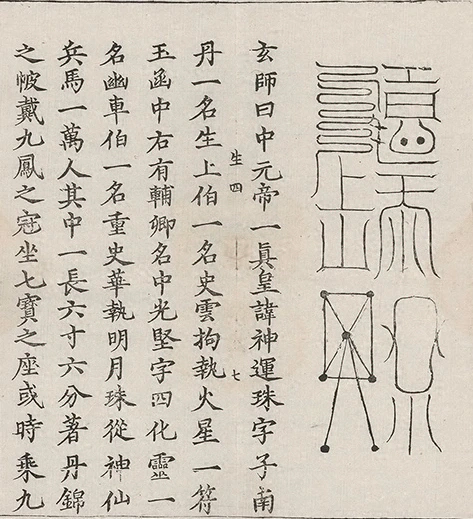 玄師曰中元帝一真皇諱神運珠字子南
丹一名生上伯一名史雲拘執火星一符
生四
七
玉函中右有輔卿名中光堅字四化靈一
名幽車伯一名重史華執明月珠從神仙
兵馬一萬人其中一長六寸六分著丹錦
之帔戴九鳳之冠坐七寶之座或時乘九